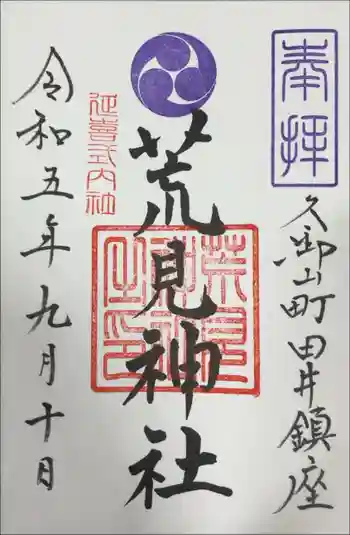 奉拝
久御山町田井鎮座
延喜式内社
荒見神社
荒見神社之印
令和五年九月十日